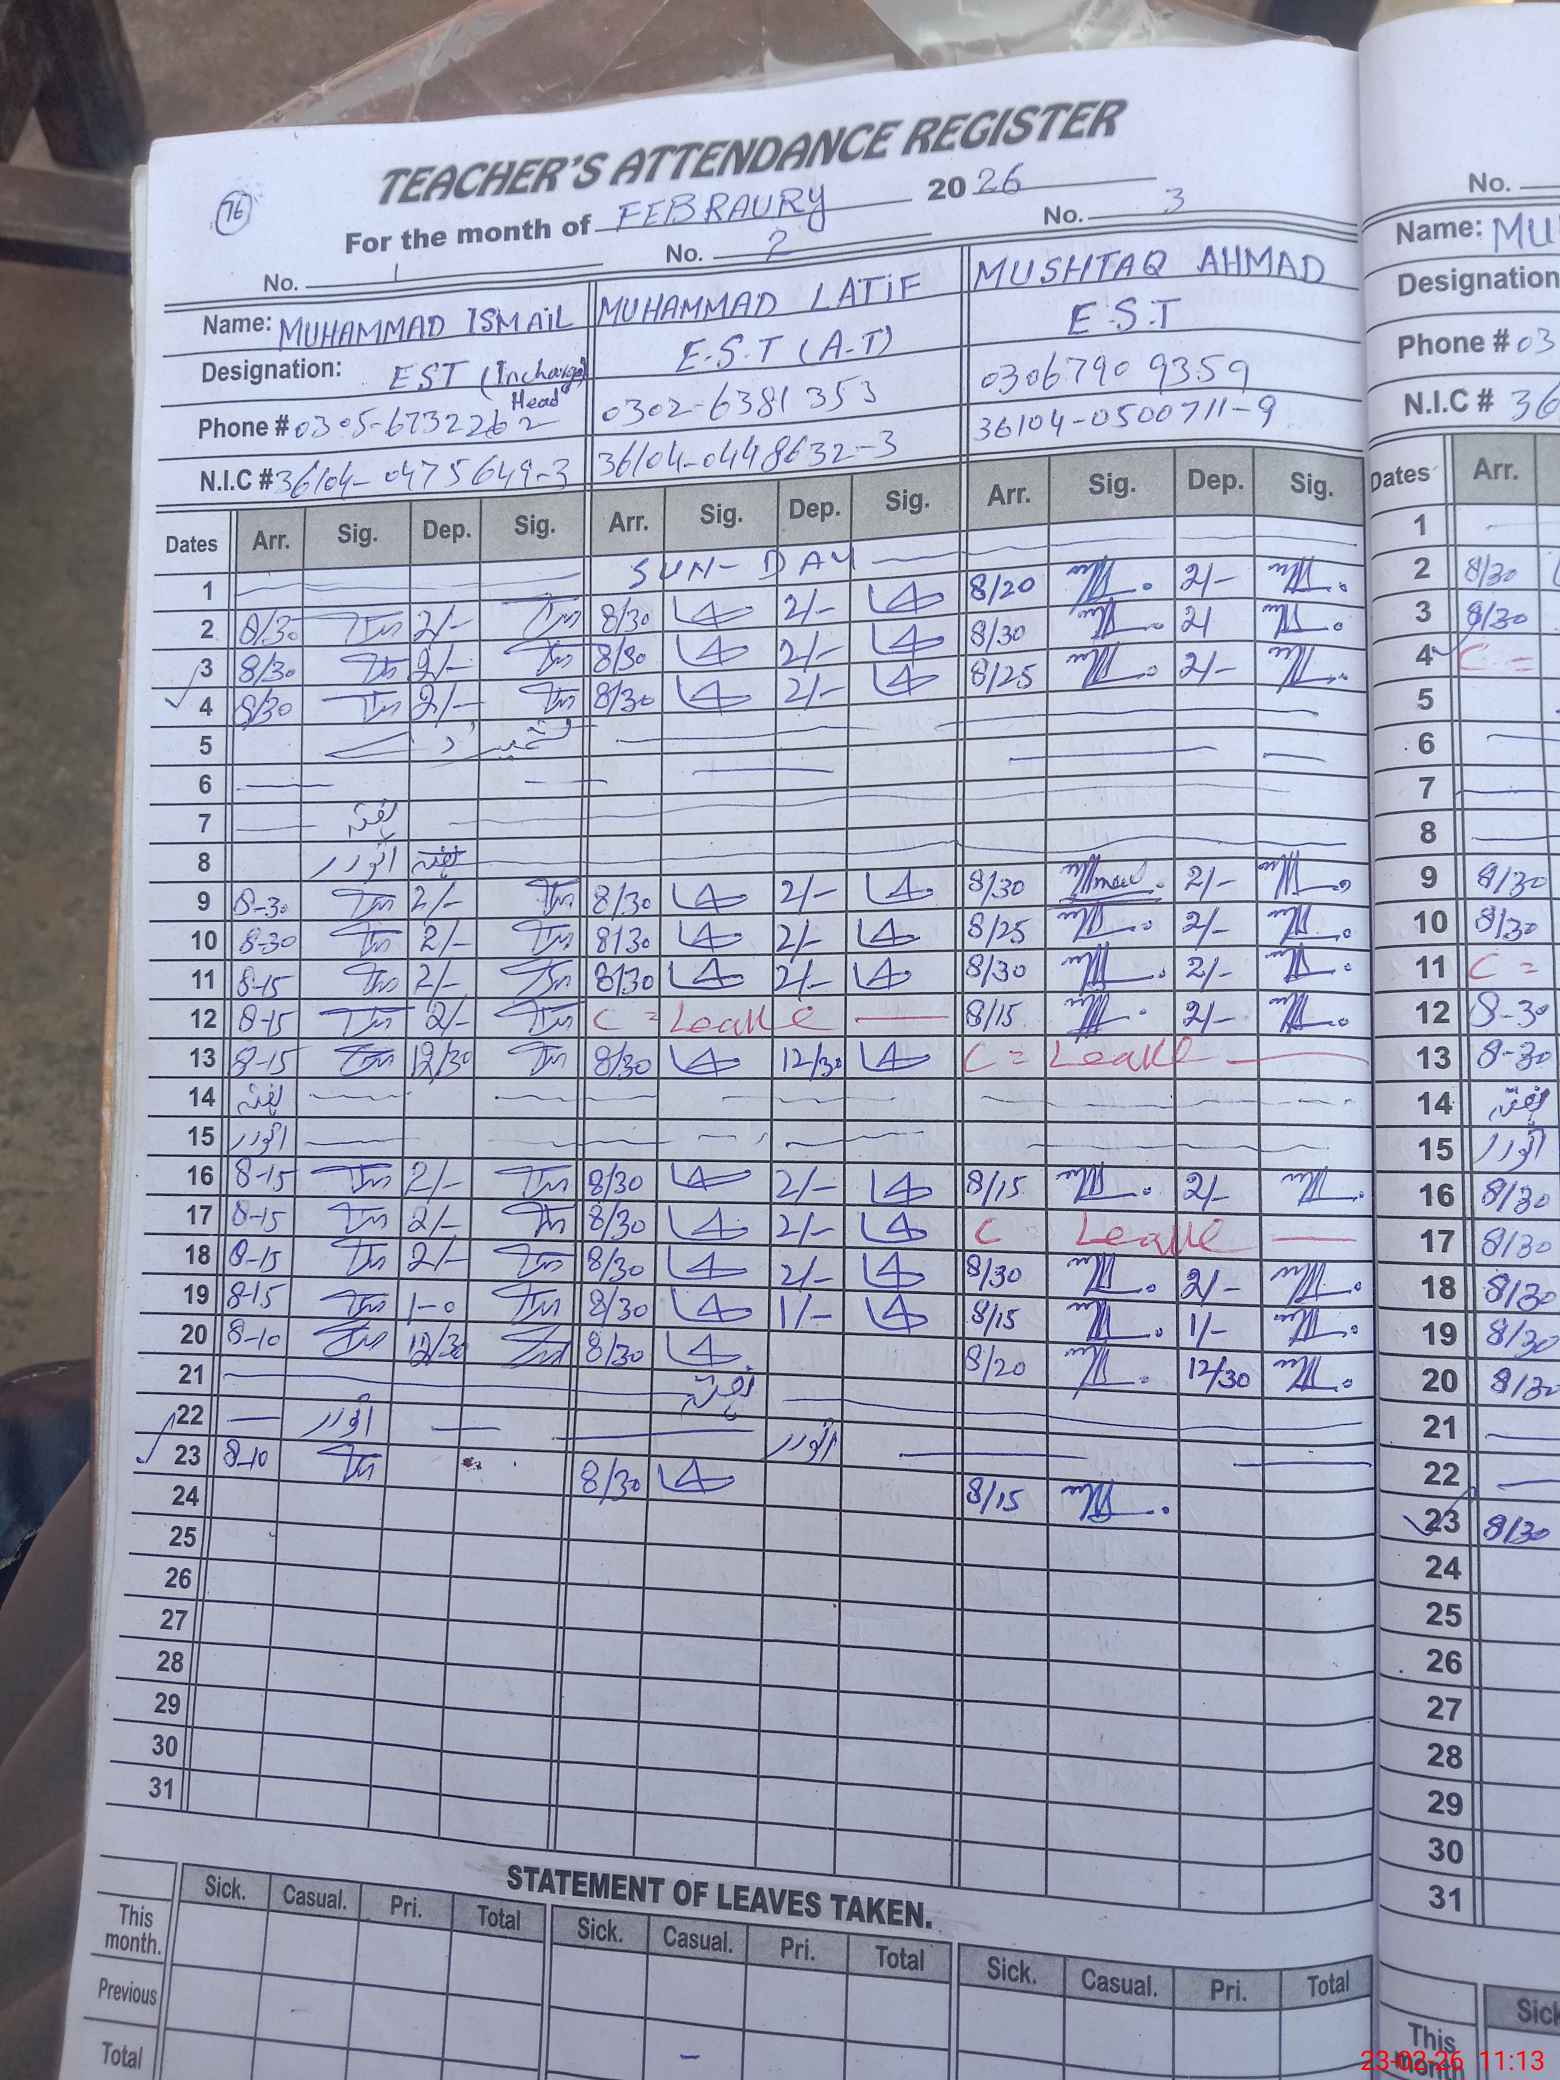 TEACHER'S ATTENDANCE REGISTER
76
For the month of FEBRAURY 2026
No. 1 No. 2 No. 3
Name: MUHAMMAD ISMAIL MUHAMMAD LATIF MUSHTAQ AHMAD
Designation: EST (Incharge Head E.S.T (A.T) E.S.T
Phone # 0305-6732262 0302-6381353 03067909359
N.I.C # 36104-0475649-3 36104-0448632-3 36104-0500711-9
Dates Arr. Sig. Dep. Sig. Arr. Sig. Dep. Sig. Arr. Sig. Dep. Sig.
1 SUN-DAY
2 8/30 2/- 8/30 2/- 8/20 2/-
3 8/30 2/- 8/30 2/- 8/30 2/
4 8/30 2/- 8/30 2/- 8/25 2/-
5
6
7 ہفتہ
8 اتوار
9 8-30 2/- 8/30 2/- 8/30 2/-
10 8-30 2/- 8/30 2/- 8/25 2/-
11 8-15 2/- 8/30 2/- 8/30 2/-
12 8-15 2/- C = Leave 8/15 2/-
13 8-15 12/30 8/30 12/30 C = Leave
14 ہفتہ
15 اتوار
16 8-15 2/- 8/30 2/- 8/15 2/-
17 8-15 2/- 8/30 2/- C Leave
18 8-15 2/- 8/30 2/- 8/30 2/-
19 8-15 1-0 8/30 1/- 8/15 1/-
20 8-10 12/30 8/30 8/20 12/30
21 ہفتہ
22 اتوار اتوار
23 8-10 8/30 8/15
24
25
26
27
28
29
30
31
STATEMENT OF LEAVES TAKEN.
Sick. Casual. Pri. Total Sick. Casual. Pri. Total Sick. Casual. Pri. Total
This month.
Previous
Total
No.
Name: MU
Designation
Phone # 03
N.I.C # 36
Dates Arr.
1
2 8/30
3 8/30
4 C =
5
6
7
8
9 8/30
10 8/30
11 C =
12 8-30
13 8-30
14 ہفتہ
15 اتوار
16 8/30
17 8/30
18 8/30
19 8/30
20 8/30
21
22
23 8/30
24
25
26
27
28
29
30
31
Sick
This month
23-02-26 11:13